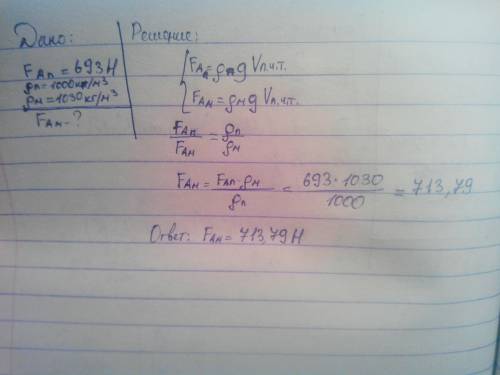 Дано:
F_Aп = 693 Н
ρп = 1000 кг/м³
ρм = 1030 кг/м³
F_Aм - ?
Решение:
F_Aп = ρпg Vп.ч.т.
F_Aм = ρмg Vп.ч.т.
F_Aп / F_Aм = ρп / ρм
F_Aм = F_Aп · ρм / ρп = 693 · 1030 / 1000 = 713,79
Ответ: F_Aм = 713,79 Н